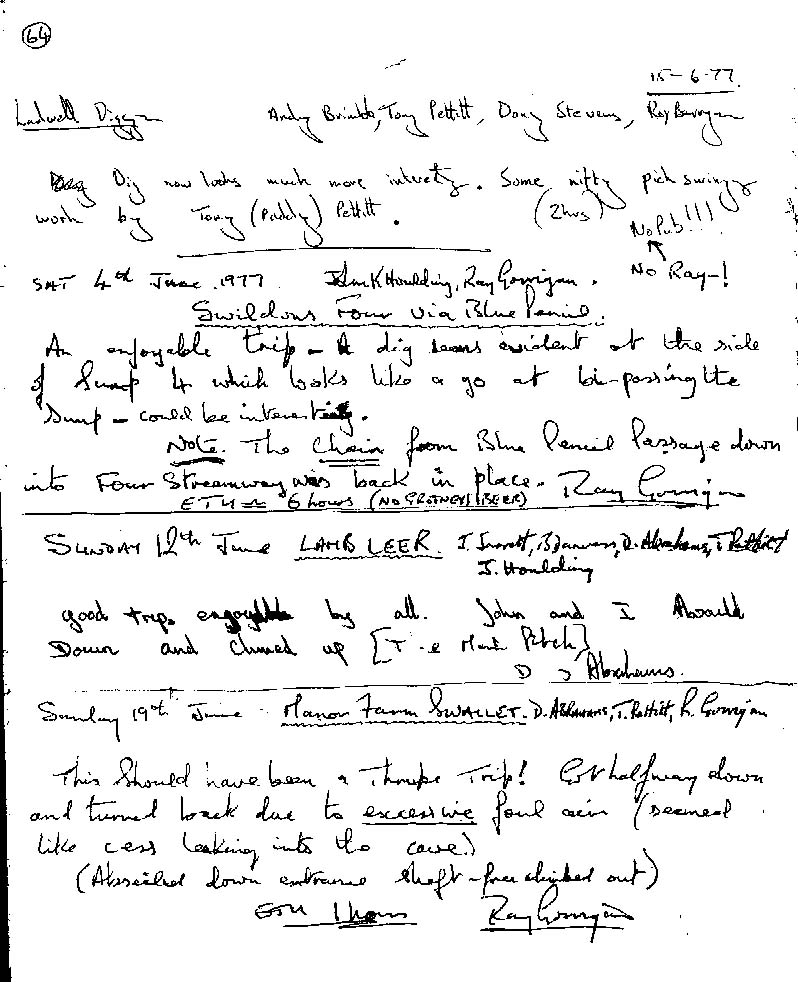 64
15-6-77.
Ladwell Digg Andy Tony Pettitt, Doug Stevens, Roy
Dig now looks much more . Some nifty pick swingg
work by Tony (Paddy) Pettitt. (2hrs)
No Pub!!!
No Ray-!
SAT 4th June 1977 K Houlding, Ray Gorrigan.
Swildons Four via Blue Pencil.
An enjoyable trip - A dig seems evident at the side
of Sump 4 which looks like a go at bi-passing the
Sump - could be interesting.
Note. The Chain from Blue Pencil Passage down
into Four Streamway was back in place. Ray Gorrigan
ETU = 6 hours (NO BEER)
SUNDAY 12th June LAMB LEER. D. Abrahams, T Pettitt
J. Houlding
good trip by all. John and I
Down and up [ Pitch]
D Abrahams.
Sunday 19th June - Manor Farm SWALLET. D. ABRAHAMS, T. Pettitt, R. Gorrigan
This Should have been a Thrupe Trip! Got halfway down
and turned back due to excessive foul air (seemed
like cess leaking into the cave.)
(Abseiled down entrance shaft - free climbed out)
ETU 1 hour Ray Gorrigan